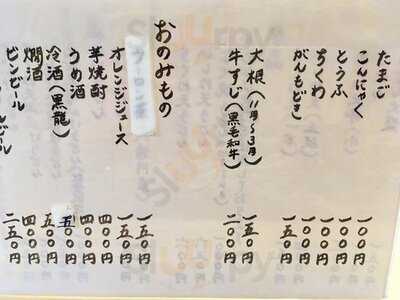 たまご 一〇〇円
こんにゃく 一〇〇円
とうふ 一〇〇円
ちくわ 一〇〇円
がんもどき 一五〇円
大根(11月〜3月) 一五〇円
牛すじ(黒毛和牛) 二〇〇円
おのみもの
ウーロン茶 一五〇円
オレンジジュース 一五〇円
芋焼酎 四〇〇円
うめ酒 四〇〇円
冷酒(黒龍) 五〇円
燗酒 五〇〇円
ビンビール 四〇〇円
ルビール 二五〇円